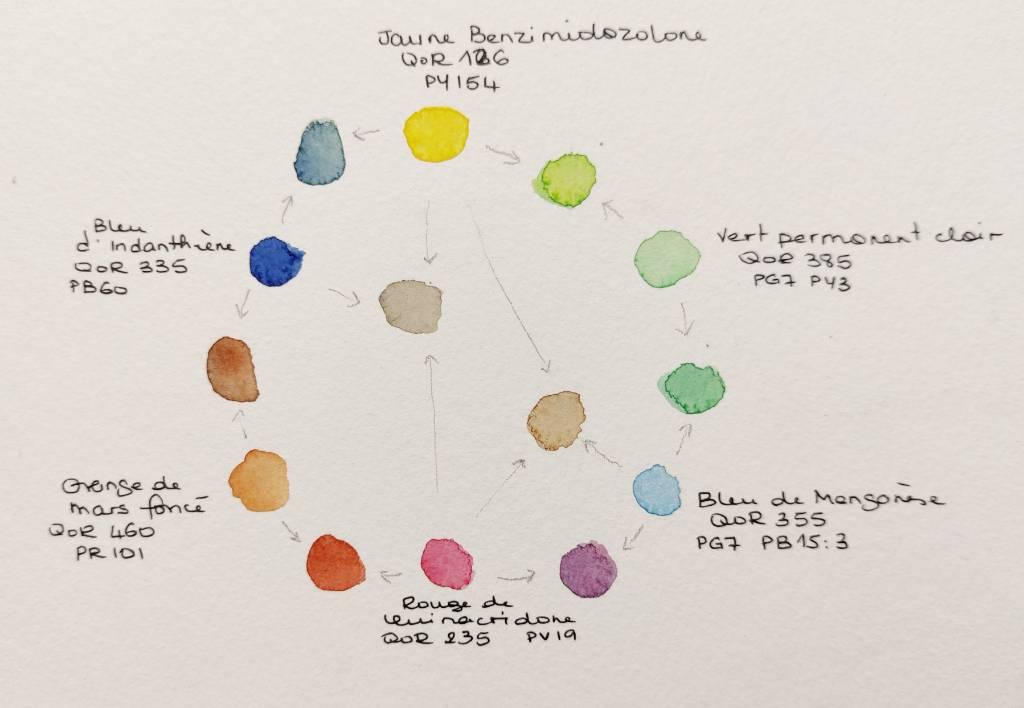 Jaune Benzimidozolone
QoR 126
PY154
Bleu
d'Indanthrène
QoR 335
PB60
Vert permanent clair
QoR 385
PG7 PY3
Orange de
mars foncé
QoR 460
PR101
Bleu de Manganèse
QoR 355
PG7 PB15:3
Rouge de
Quinacridone
QoR 235 PV19